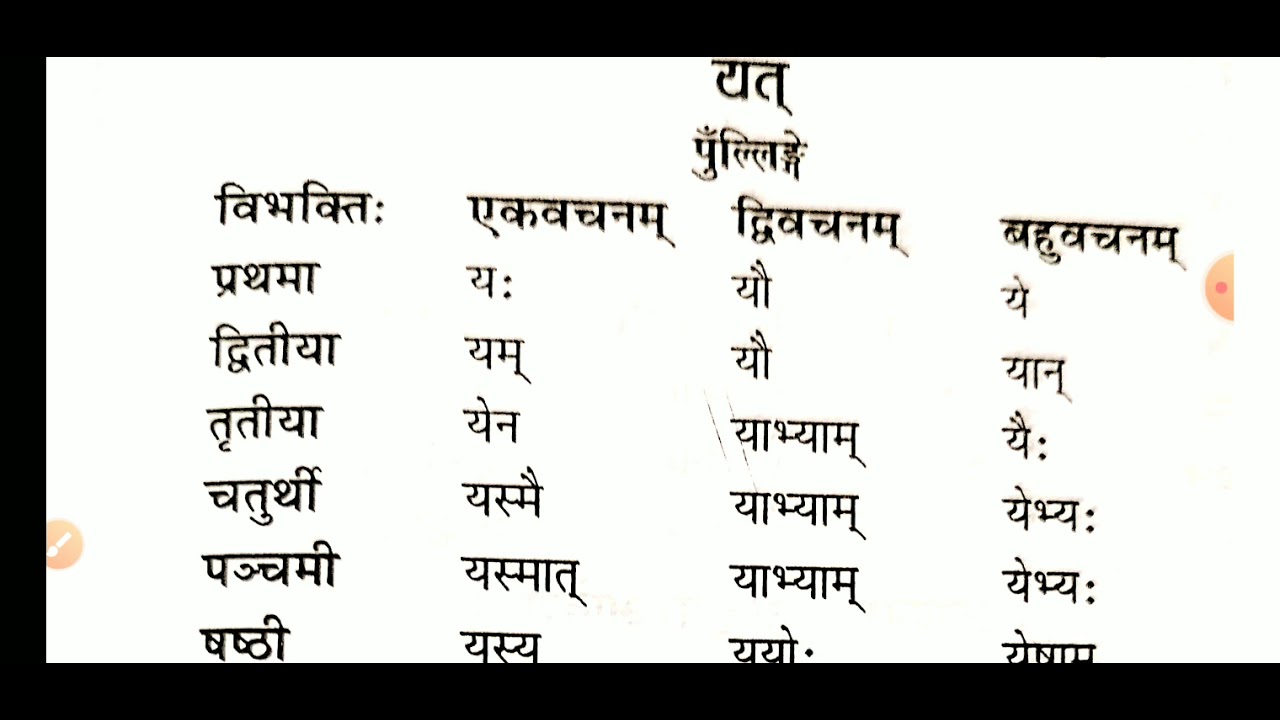 यत्
पुँल्लिङ्गे
विभक्तिः एकवचनम् द्विवचनम् बहुवचनम्
प्रथमा यः यौ ये
द्वितीया यम् यौ यान्
तृतीया येन याभ्याम् यैः
चतुर्थी यस्मै याभ्याम् येभ्यः
पञ्चमी यस्मात् याभ्याम् येभ्यः
षष्ठी यस्य ययोः येषाम्